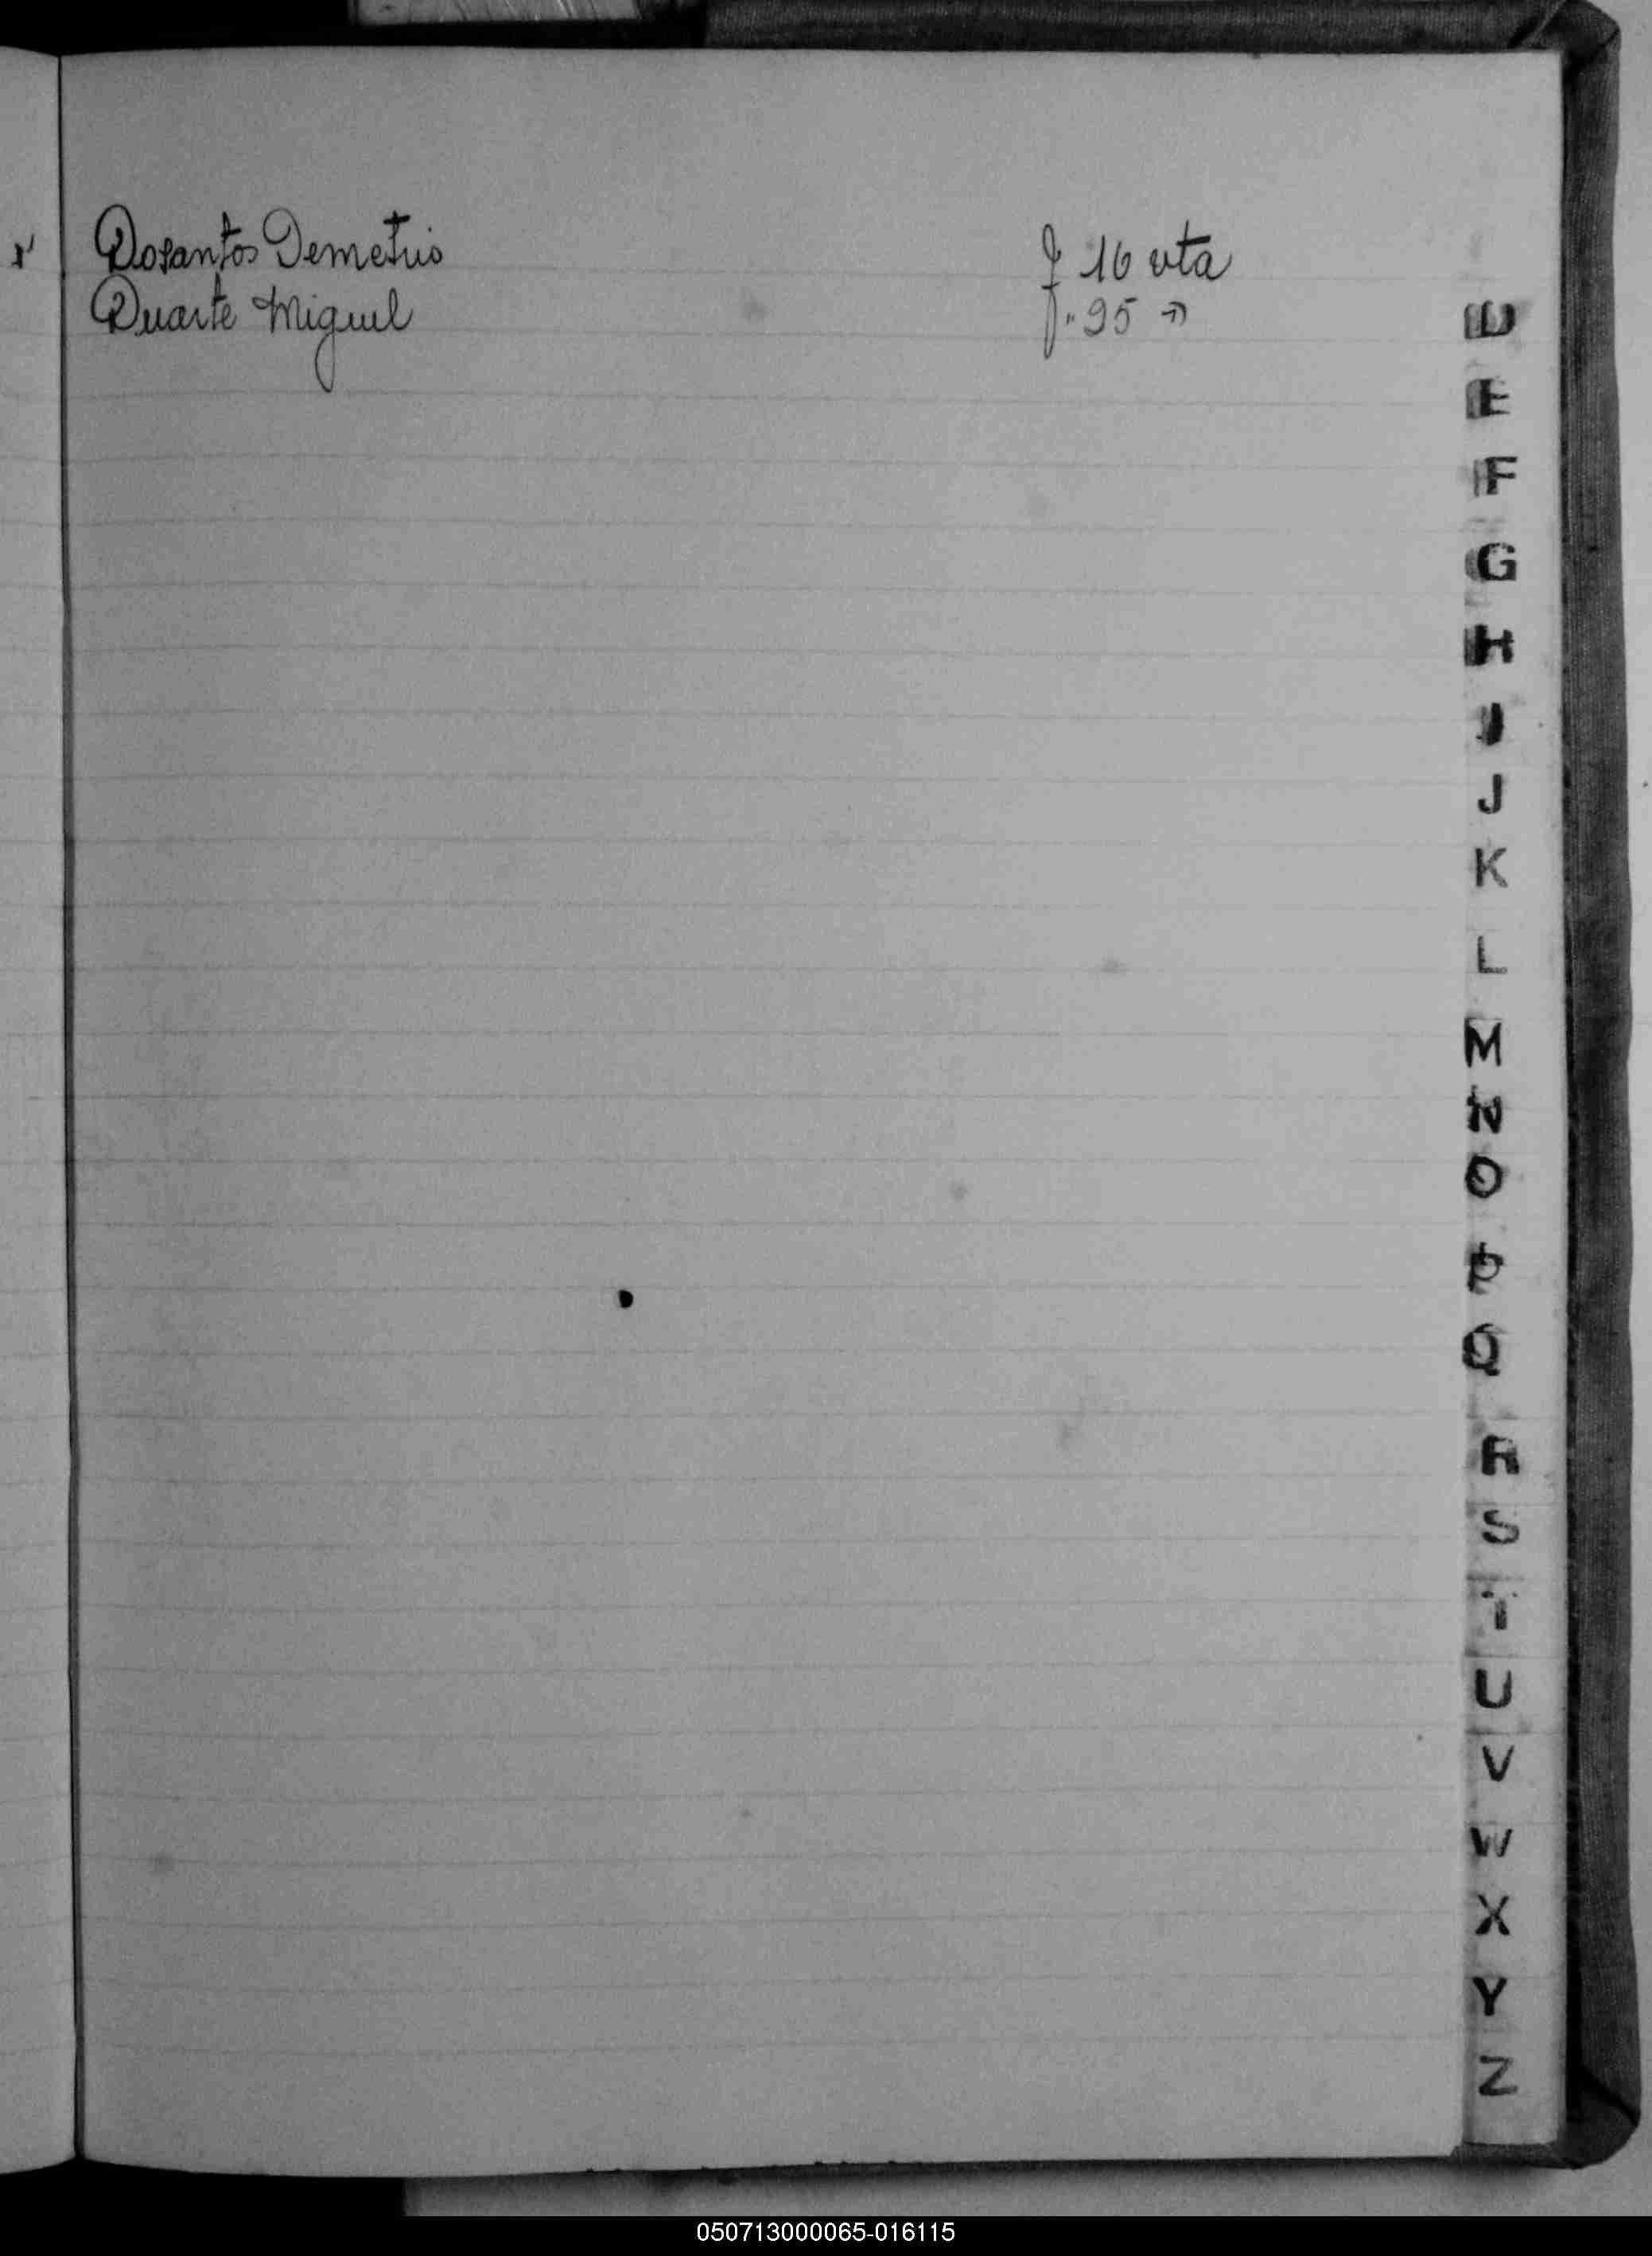 Dosantos Demetrio f 16 vta
Duarte Miguel f. 95 "
D
E
F
G
H
I
J
K
L
M
N
O
P
Q
R
S
T
U
V
W
X
Y
Z
050713000065-016115